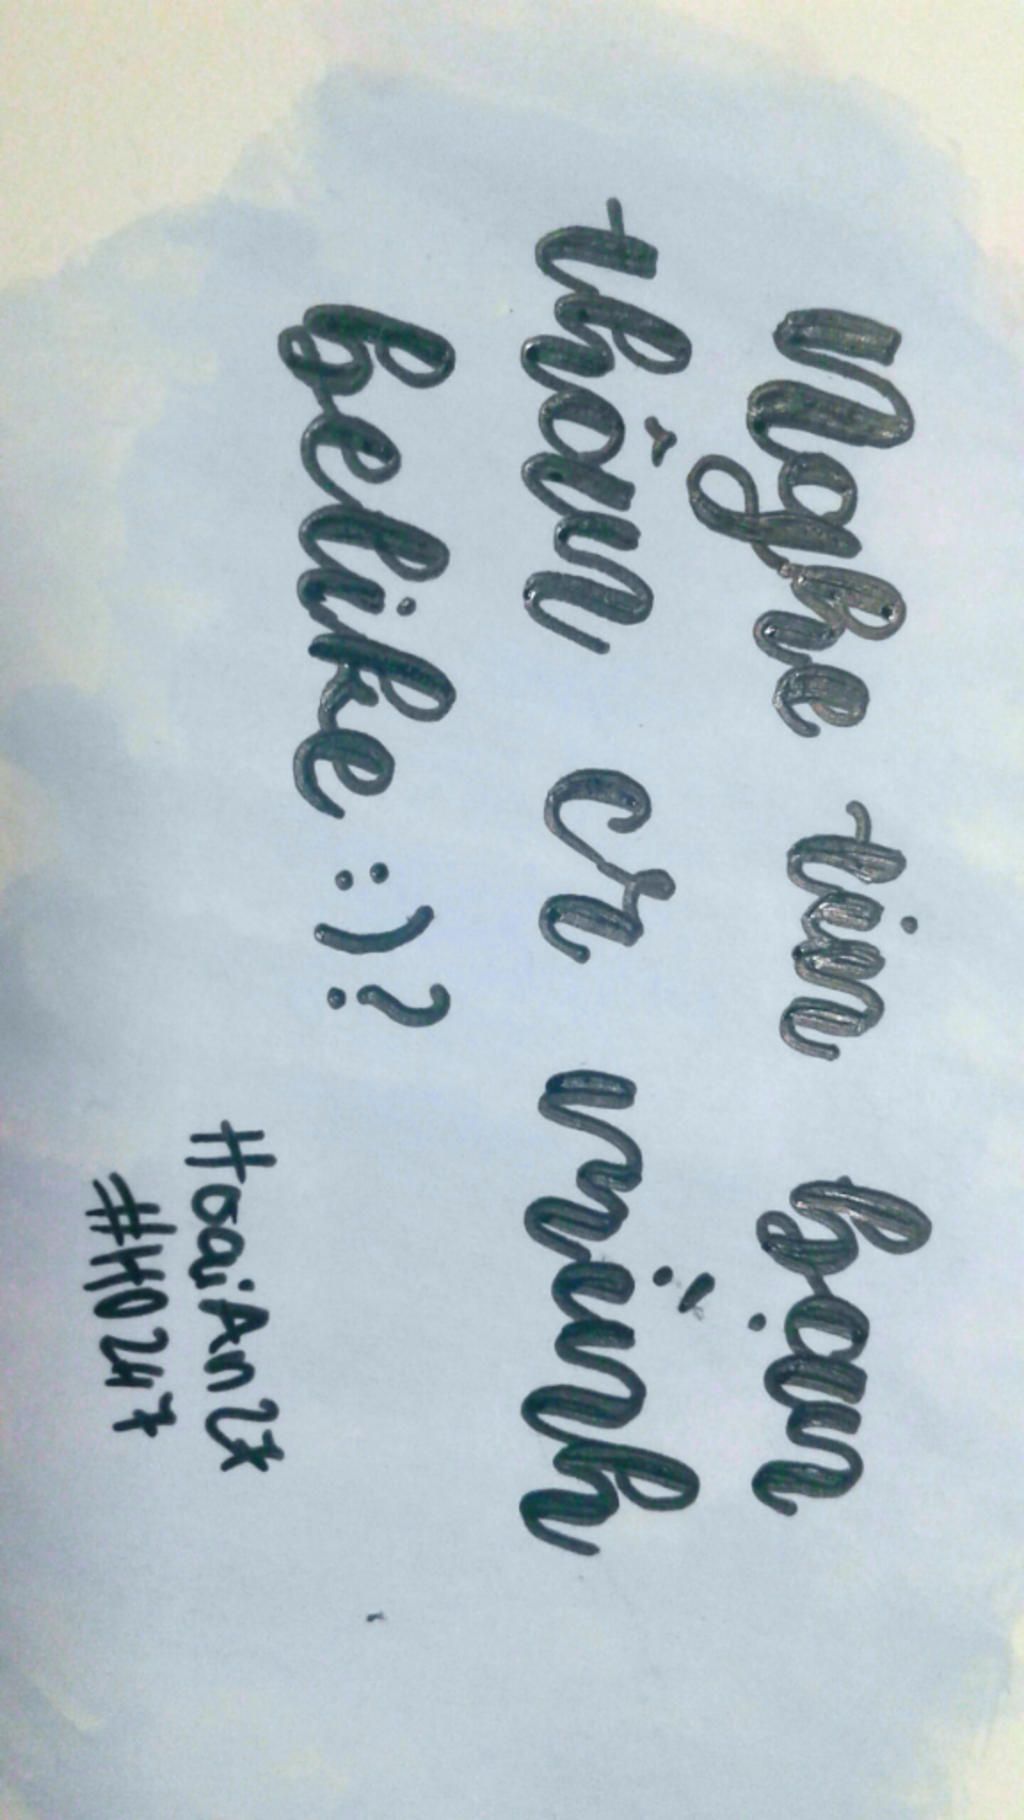 Nghe tin bạn
thân cr mình
belike :)?
HoaiAn27
#H0247